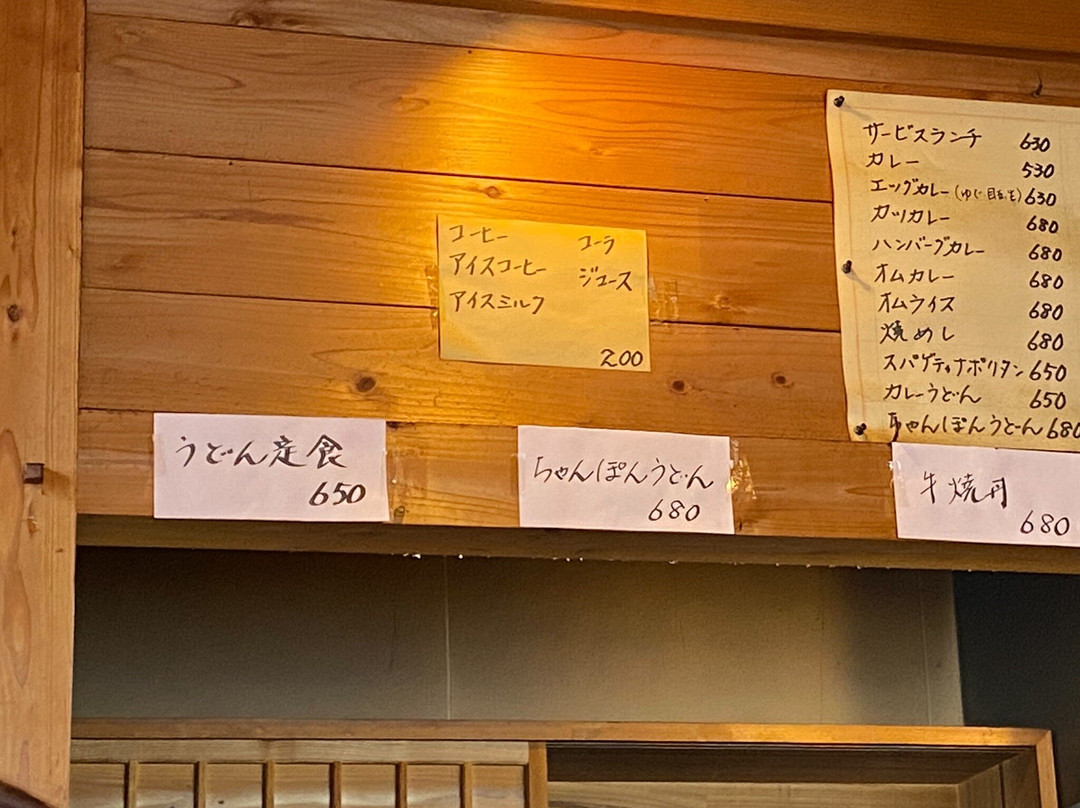 コーヒー コーラ
アイスコーヒー ジュース
アイスミルク
200
サービスランチ 630
カレー 530
エッグカレー(ゆで・目玉・生) 630
カツカレー 680
ハンバーグカレー 680
オムカレー 680
オムライス 680
焼めし 680
スパゲティナポリタン 650
カレーうどん 650
ちゃんぽんうどん 680
うどん定食
650
ちゃんぽんうどん
680
牛焼丼
680